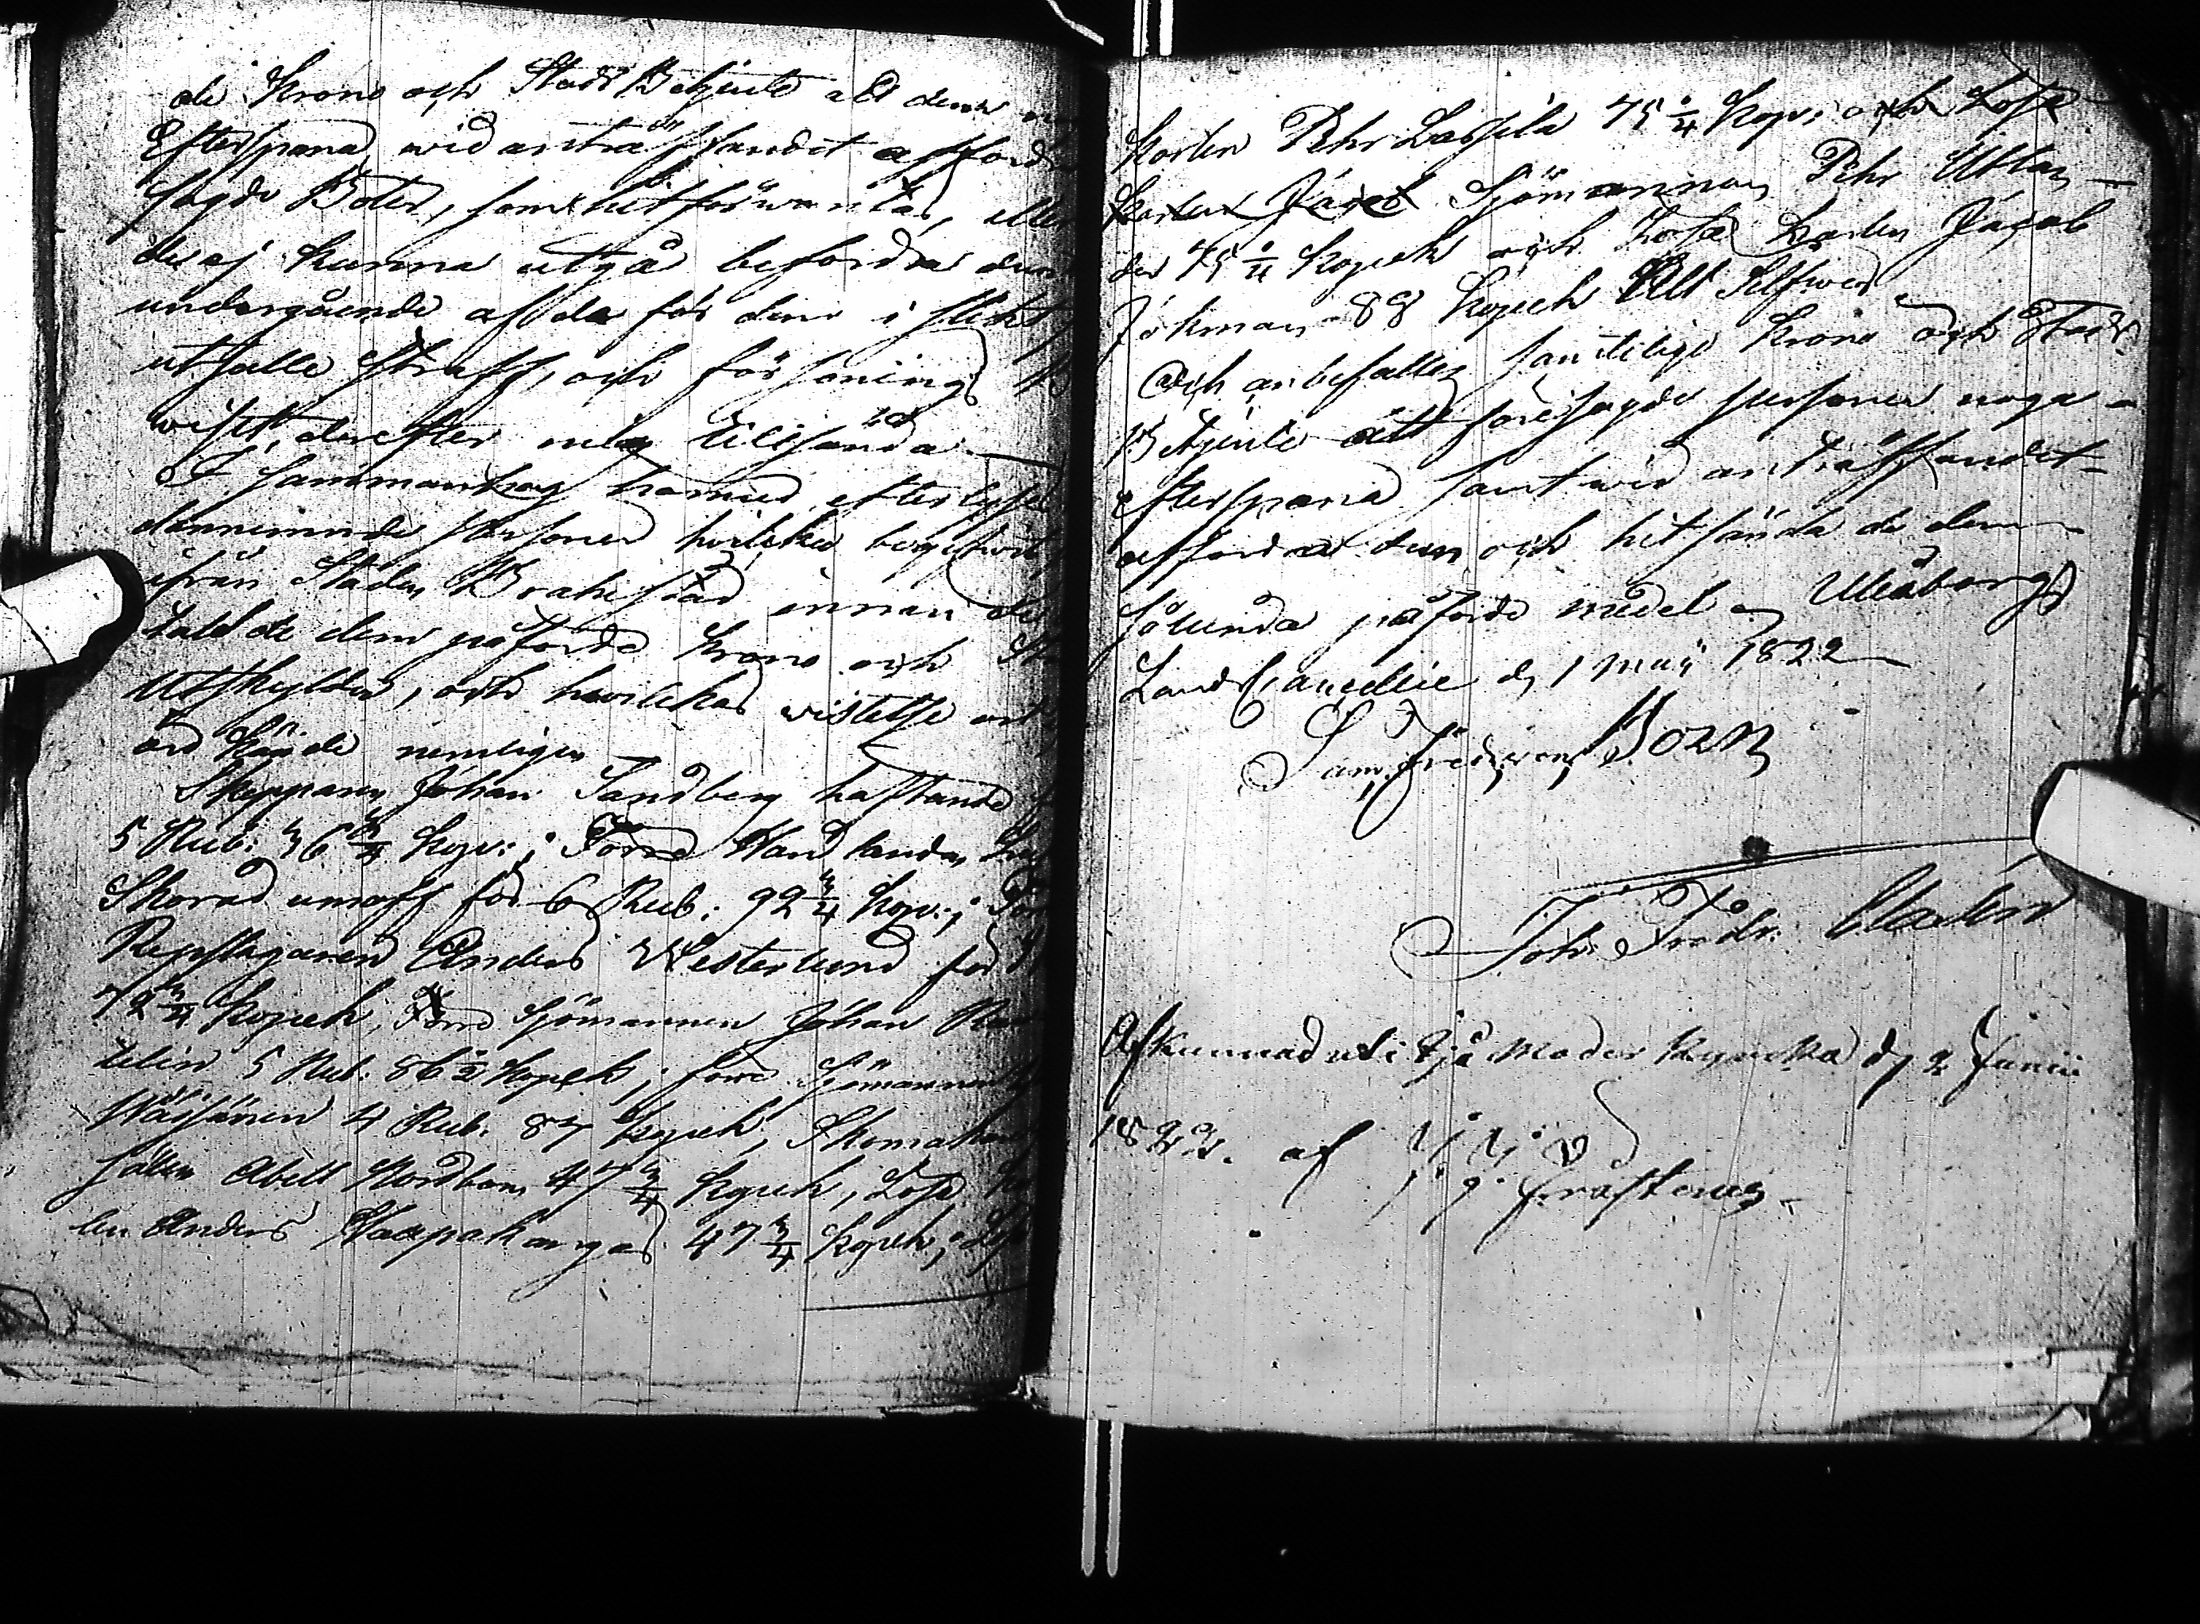 de Krono och Stads Betjente att dem
Efterspana, wid anträffandet affordra
sagde Böter, som hitförwäntas, eller
de ej kunna utgå befordra dem
undergående af de för dem i stället
utsatte straff, och försonings
wist, derefter mig tillsända.
I sammanhang härmed efterlyses
dannemnde personer hvilcka begifwit
ifrån Staden Brahestad innan de
tald de dem påförde Krono och
Utskylder, och hvilckas wistelse
ord kände nemligen
Skepparen Johan Sandberg häftande
5 Rub: 36 3/4 Kop:; Förre Handlanden
Skorad umaff för 6 Rub: 92 3/4 Kop:;
Repslagaren Anders Westerlund för
72 3/4 Kopek, Förre Sjömannen Johan
telin 5 Rub: 86 1/2 Kopek; förre Sjömannen
Wäisänen 4 Rub: 87 Kopek, Skomakare
sällen Abell Nordbom 47 3/4 Kopek, Lösa
len Anders Haapakangas 47 3/4 Kopek;
Karlen Pehr Lassila 75 1/4 Kop: och Lösa
Karlen Jacob Sjömannen Pehr Utlan-
der 75 1/4 Kopek och Lösa Karlen Jacob
Jökman 88 Kopek Allt Silfwer
Och anbefalles samtelige Krono och Stads
Betjente att föresagde personer noga
efterspana samt wid anträffandet
affordra dem och hitsända de dem
sålunda påförde medel. Uleåborgs
Lands Cancellie d. 1 Maji 1822
Sam. Fredr. von Born
Joh: Fredr: Claudin
Afkunnad uti Sjå Moder Kyrcka d. 2 Junii
1822. af J. J.
Frosterus